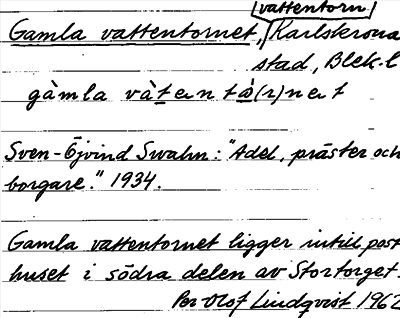 /vattentorn/
Gamla vattentornet, Karlskrona
stad, Blek. l
gàmla vàtentò(r)net
Sven-Öjvind Swahn: "Adel, präster och
borgare." 1934.
Gamla vattentornet ligger intill post
huset i södra delen av Stortorget.
Per Olof Lindqvist 1962